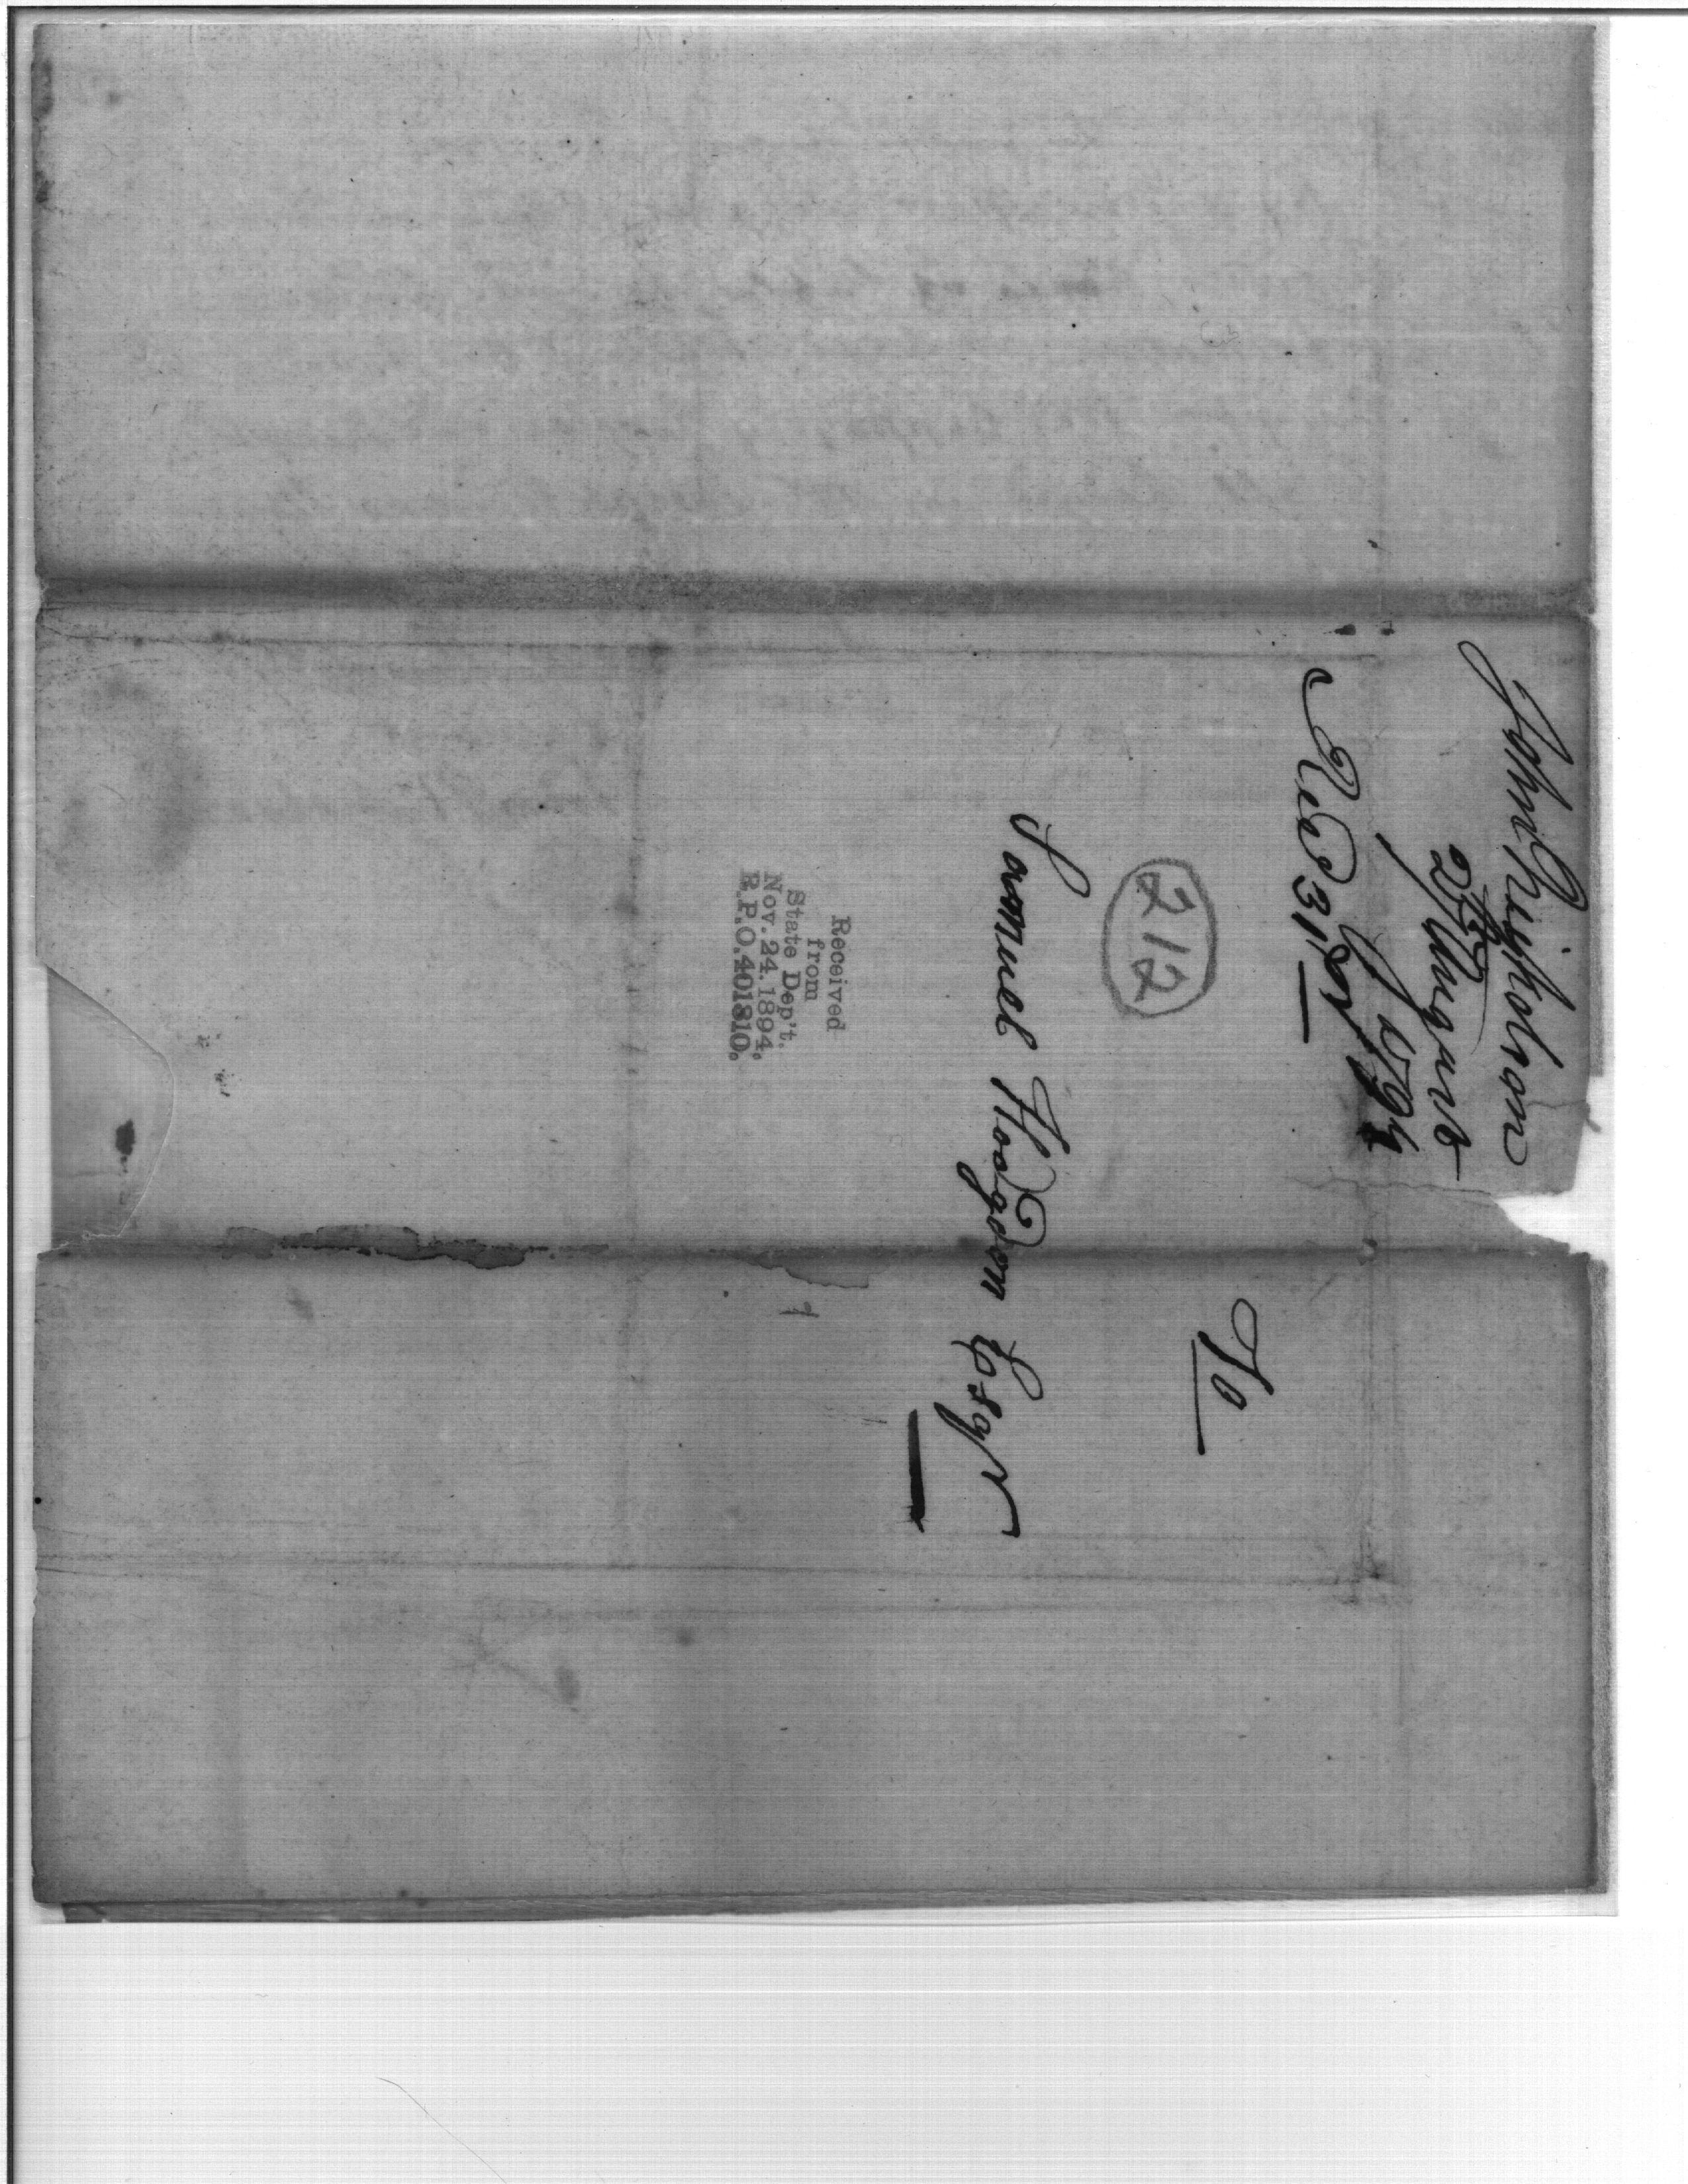 John Nicholson
25th August
1794
Recd 31st
212
To
Samuel Hodgdon Esqr
Received
from
State Dep't.
Nov. 24. 1894.
R.P.O. 401810.